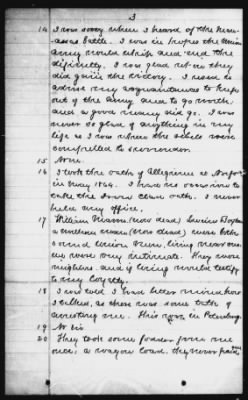 3
14 I was sorry when I heard of the Manassas Battle. I was in hopes the Union
army would whip and end the
difficulty. I was glad when they
did gain the victory. I used to
advise my acquaintances to keep
out of the Army and to go north
and a good many did go. I was
never so glad of anything in my
life as I was when the rebels were
compelled to surrender.
15 None.
16 I took the oath of Allegiance at Norfolk
in May 1864. I have no occasion to
take the Iron clad oath. I never
held any office.
17 William (now dead)
a (now dead) were both
sound Union men, living near me
we were very intimate. They were
neighbors. and if living would testify
to my loyalty.
18 I was told I had better mind how
I talked, as there was some talk of
arresting me. This was in Petersburg.
19 No sir.
20 They took some fodder from me
once, a wagon load, they never paid me